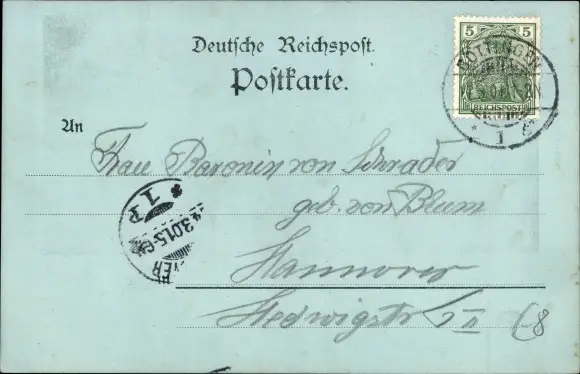 Deutsche Reichspost.
Postkarte.
5 5
REICHSPOST
GÖTTINGEN
* 1
An
Frau Baronin von Schrader
geb. von Blum
Hannover
Hedwigstr 5 II
* 1 P
4.3.01.5-6N